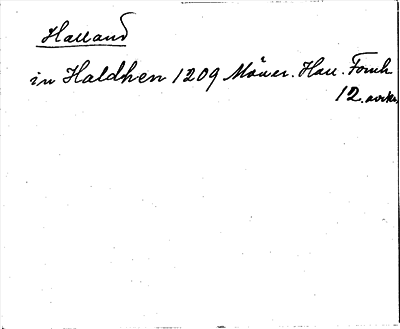 Halland
in Haldhen 1209 Möner. Hall. Fornh
12. avskr.